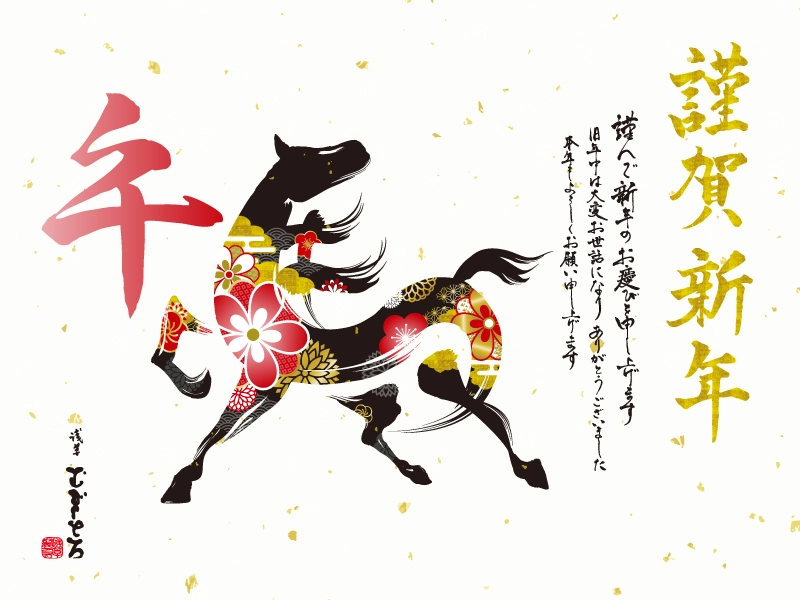 謹賀新年
謹んで新年のお慶びを申し上げます
旧年中は大変お世話になり ありがとうございました
本年もよろしくお願い申し上げます
午
浅草
むぎとろ